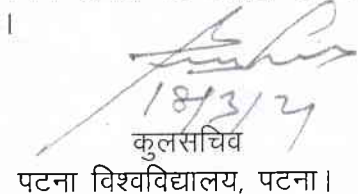 ।
18/3/21
कुलसचिव
पटना विश्वविद्यालय, पटना।